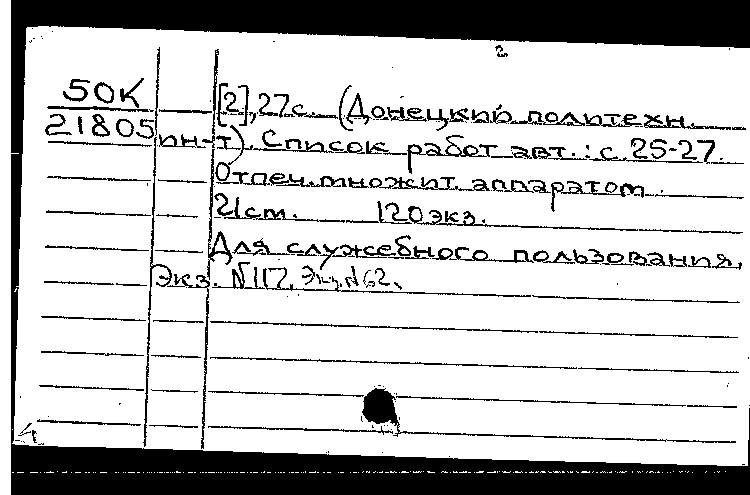 2
50К [2],27с. (Донецкий политехн.
21805 ин-т). Список работ авт.: с.25-27.
Отпеч. множит. аппаратом.
21см. 120 экз.
Для служебного пользования.
Экз. №117, Экз. №62.
4